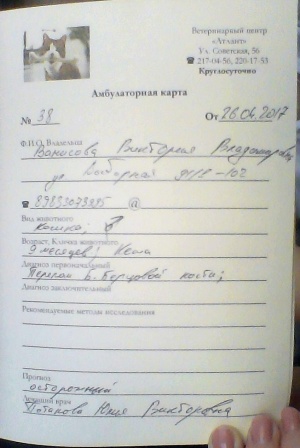 Ветеринарный центр
«Атлант»
Ул. Советская, 56
☎ 217-04-56, 220-17-53
Круглосуточно
Амбулаторная карта
№ 38 От 26.04.2017
Ф.И.О. Владельца
Виктория Владимировна
☎ 89833073295 @
Вид животного
кошка; ♂
Возраст, Кличка животного
9 месяцев; Кеша
Диагноз первоначальный
Перелом Б. Берцовой кости;
Диагноз заключительный
Рекомендуемые методы исследования
Прогноз
осторожный
Лечащий врач
Потапова Юлия Викторовна